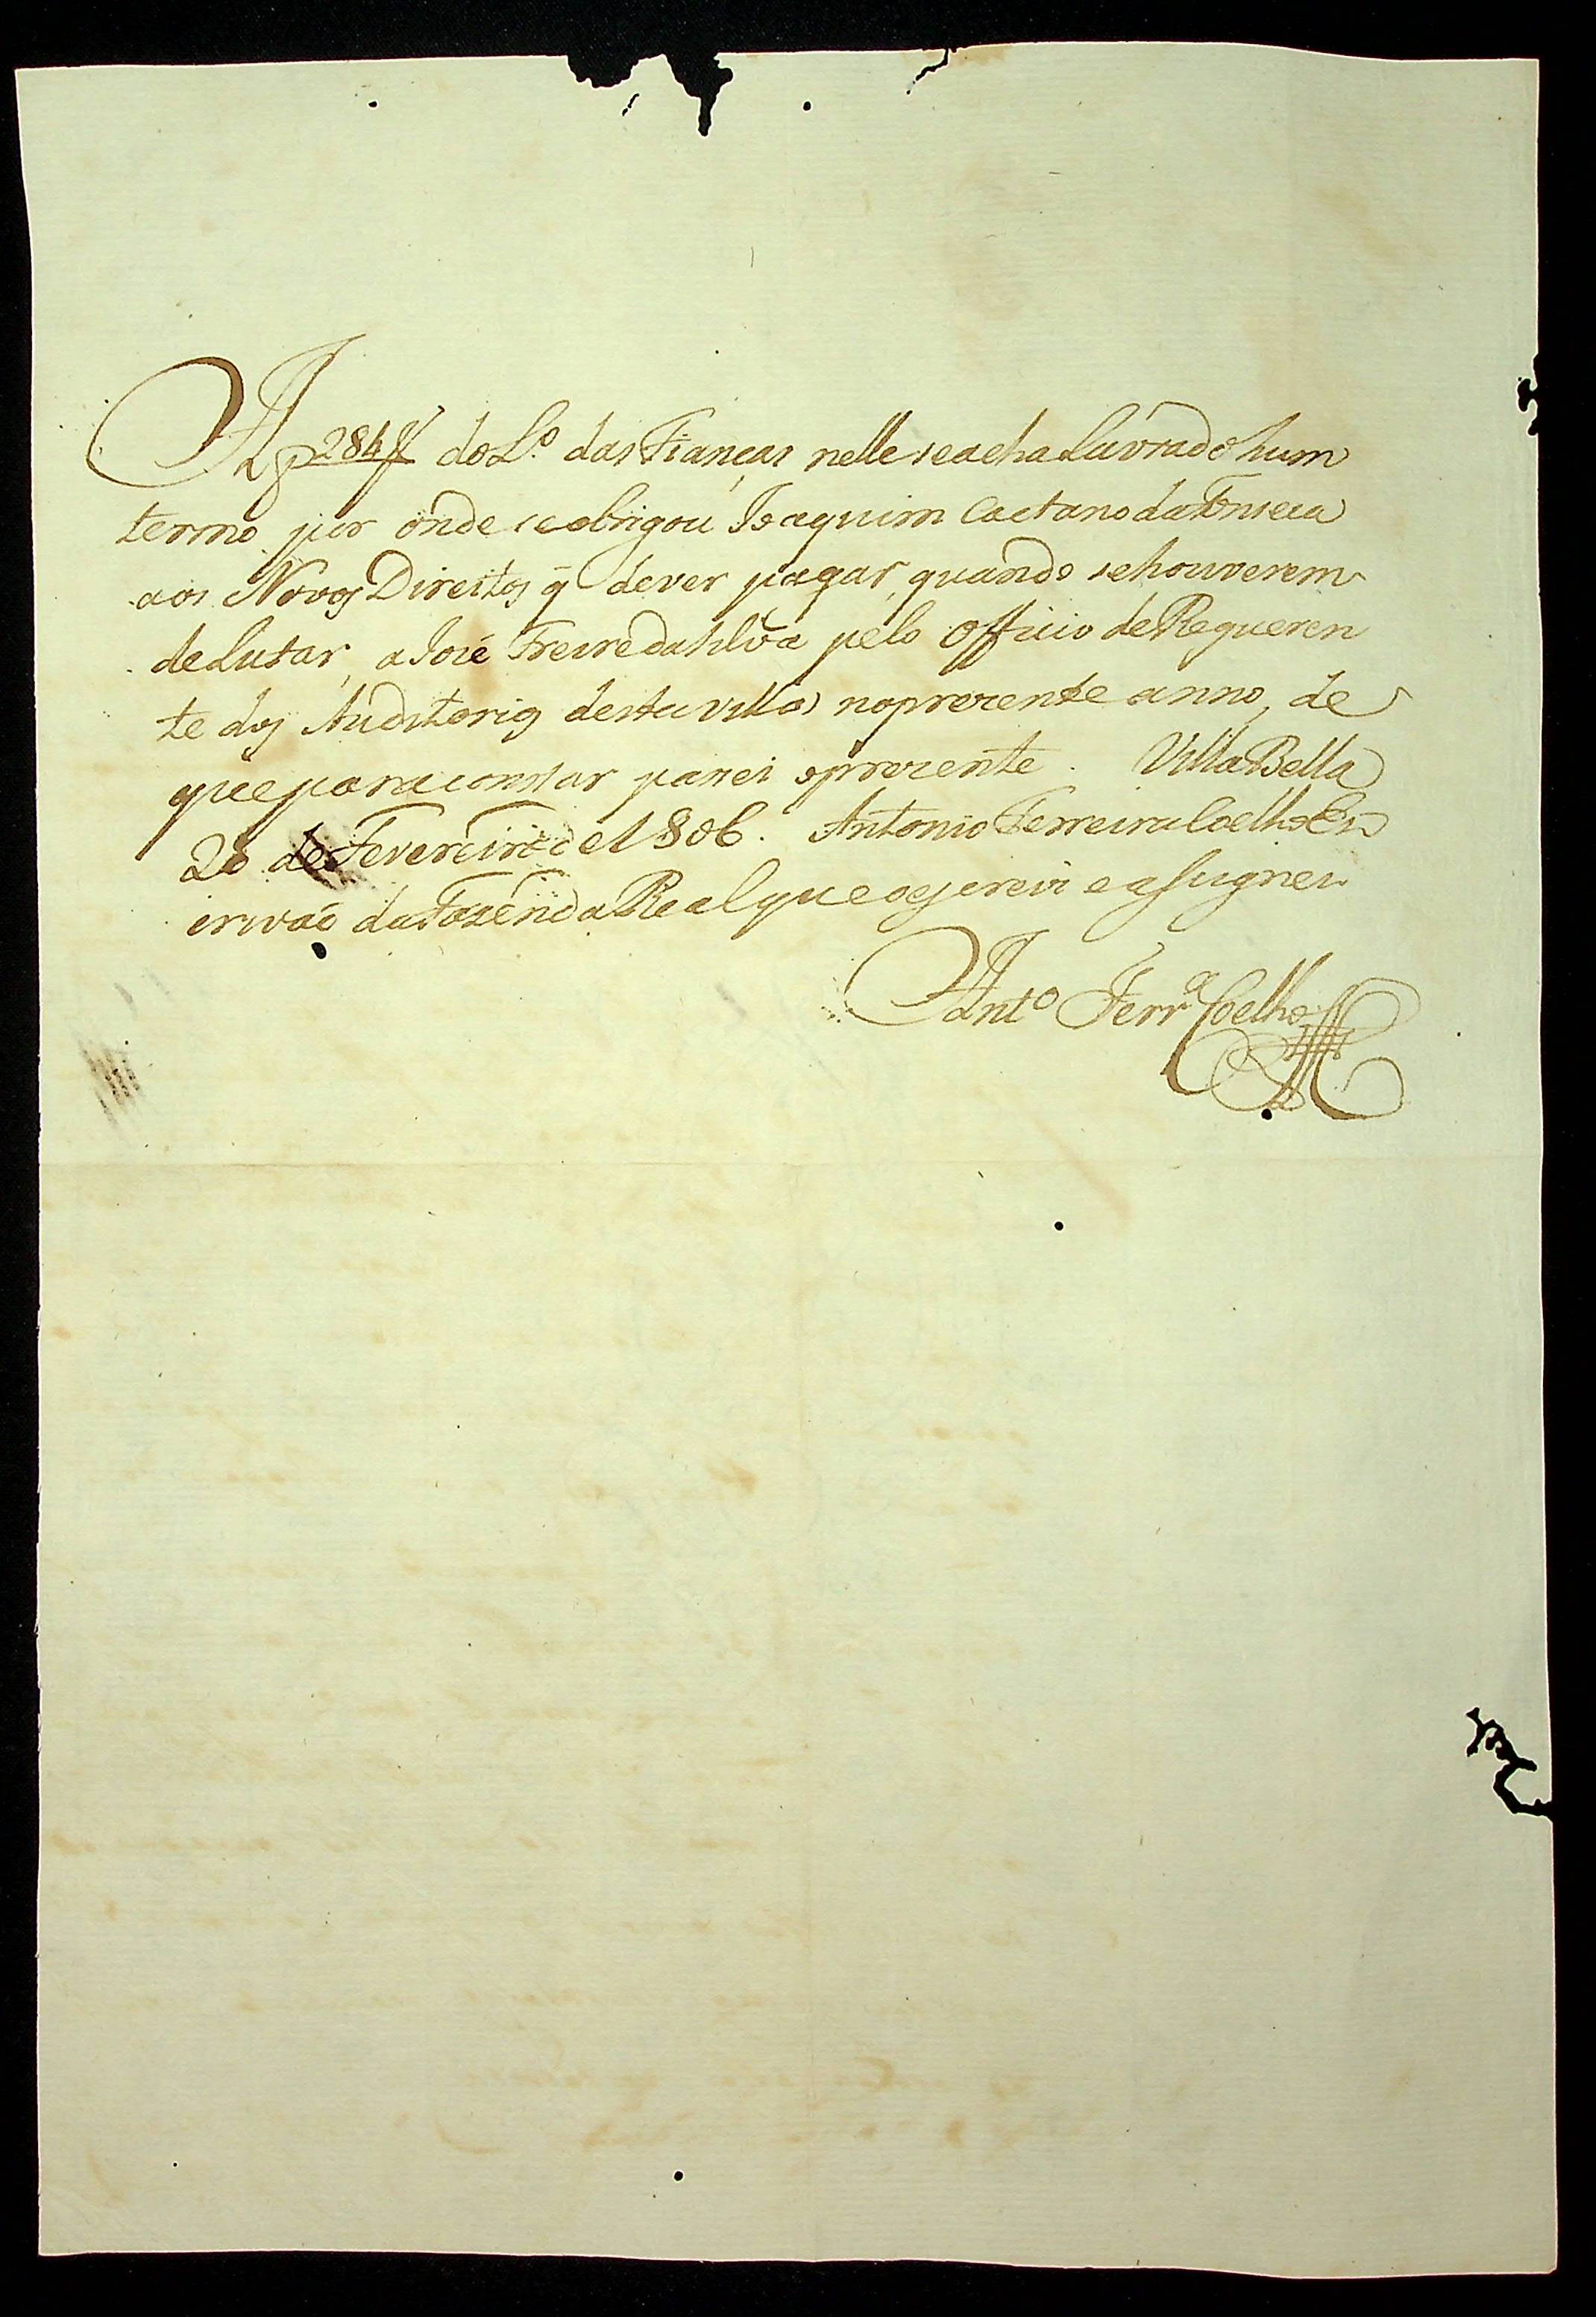 Af 284 do L.º das Fianças nelle seacha Lavrado hum
termo por onde seobrigou Joaquim Caetano da Fonseca
aos Novos Direitos q̃ dever pagar, quando sehouverem
deLutar, a José Freire daSilva pelo officio de Requeren
te dos Auditorios desta villa noprezente anno, de
que para constar passei oprezente. Villa Bella
20 de Fevereiro de 1806. Antonio Ferreira Coelho Es
crivaõ da Fazenda Real que oescrevi e assignei
Ant.º Ferr.ª Coelho